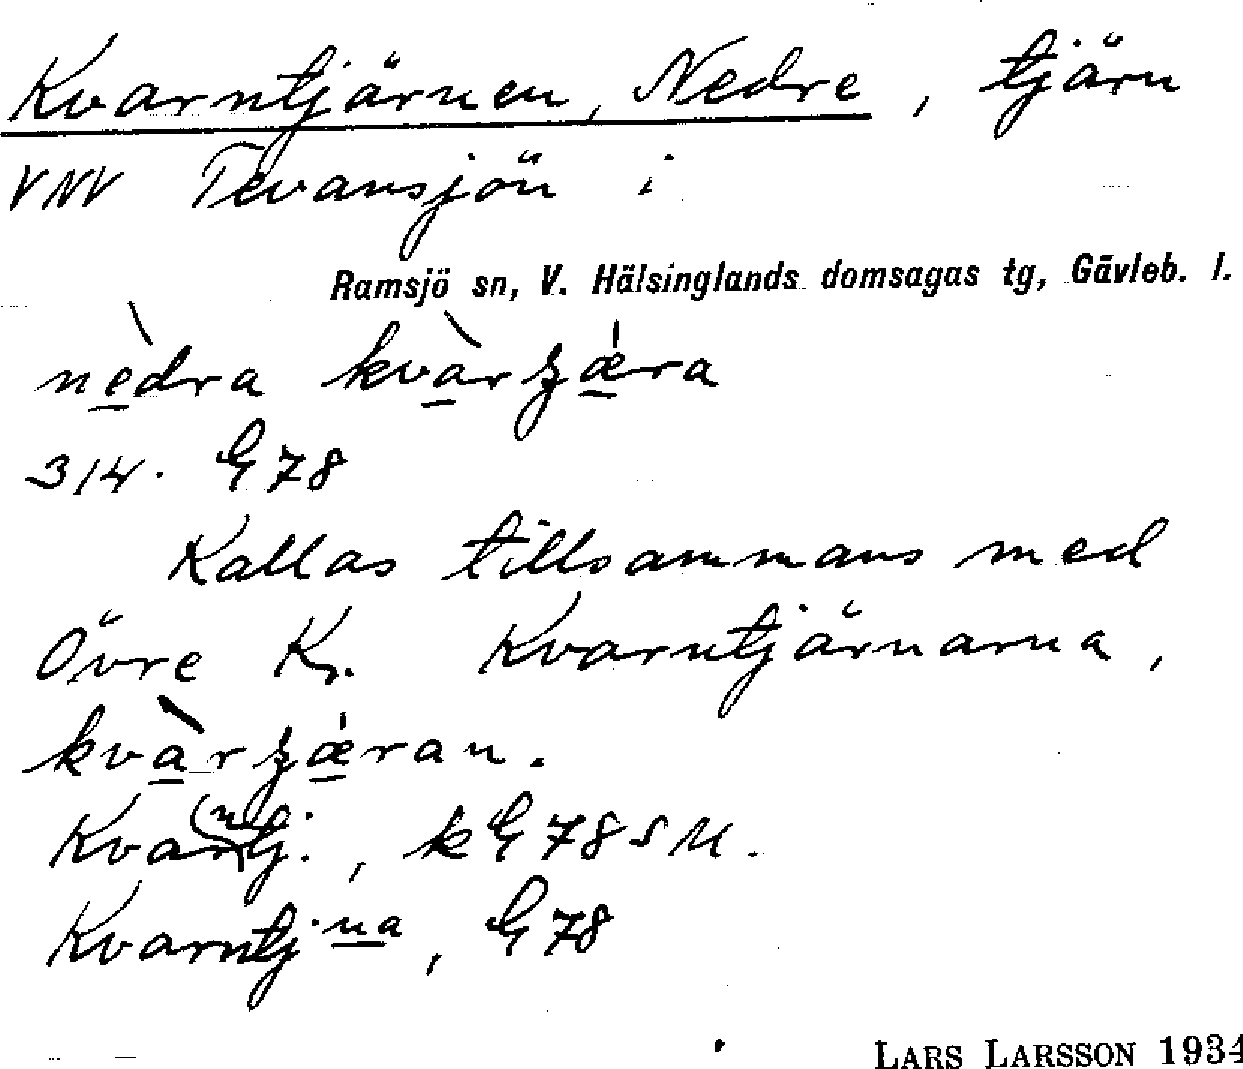 Kvarntjärnen, Nedre, tjärn
VNV Tevansjön i
Ramsjö sn, V. Hälsinglands domsagas tg, Gävleb. l.
nèdra kvàrʒǽra
3/4. G 78
Kallas tillsammans med
Övre K. Kvarntjärnarna,
kvàrʒǽran.
Kvar(n)tj., k G 78 S M.
Kvarntj:na, G 78
LARS LARSSON 1934